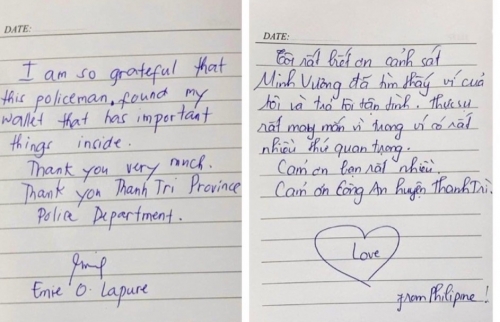 DATE:
I am so grateful that
this policeman, found my
wallet that has important
things inside.
Thank you very much.
Thank you Thanh Tri Province
Police Department.
Emie O. Lapure
DATE:
Tôi rất biết ơn cảnh sát
Minh Vương đã tìm thấy ví của
tôi và trả tôi tận tình. Thực sự
rất may mắn vì trong ví có rất
nhiều thứ quan trọng.
Cám ơn bạn rất nhiều.
Cám ơn Công An huyện Thanh Trì.
Love
from Philipine!